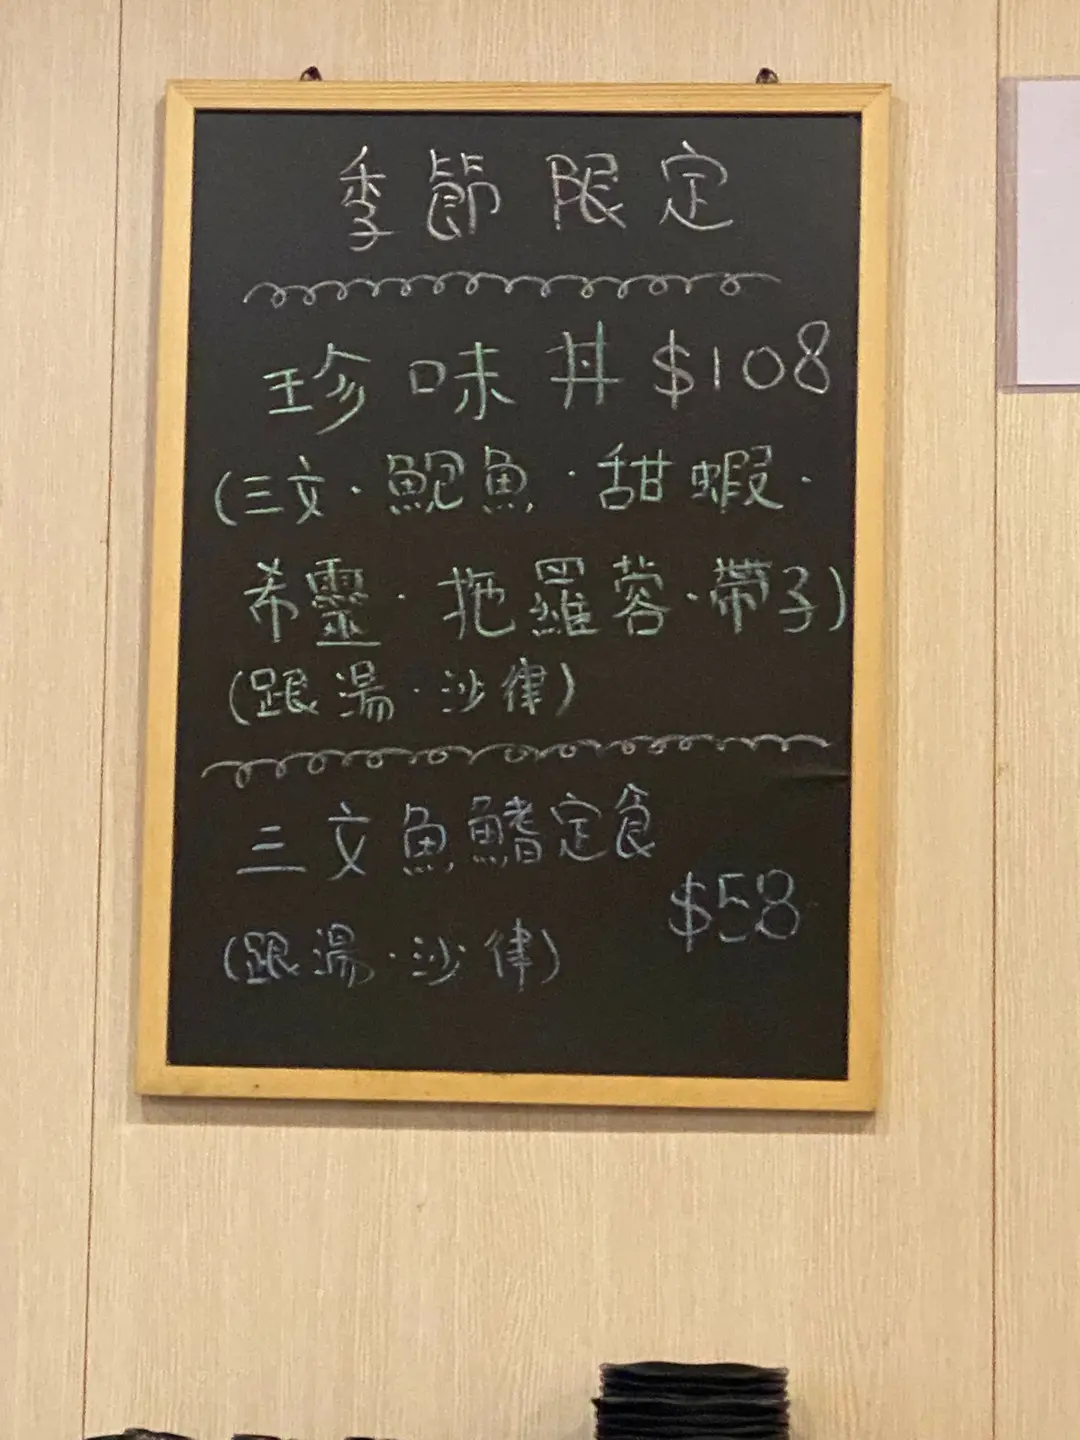 季節限定
珍味丼 $108
(三文·鮑魚·甜蝦·
希靈·拖羅蓉·帶子)
(跟湯·沙律)
三文魚鰭定食
$58
(跟湯·沙律)